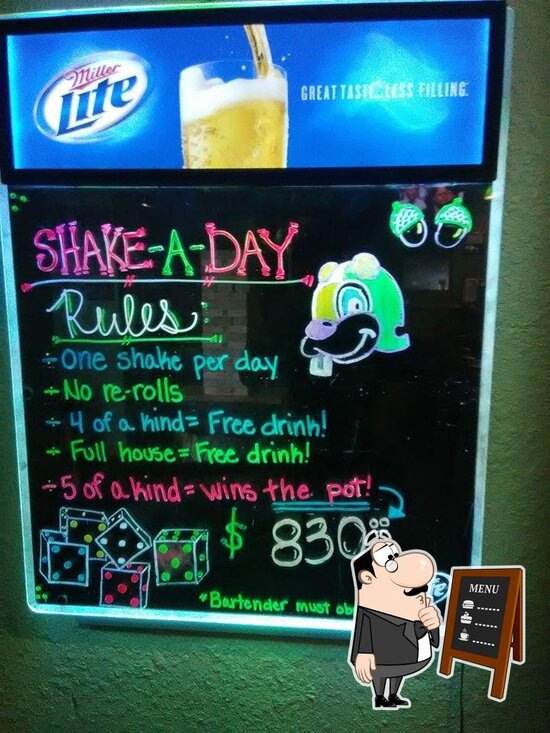 Miller
Lite
GREAT TASTE LESS FILLING.
SHAKE-A-DAY
Rules:
÷ One shake per day
÷ No re-rolls
÷ 4 of a kind = Free drink!
÷ Full house = Free drink!
÷ 5 of a kind = wins the pot!
$ 830.00
*Bartender must
MENU